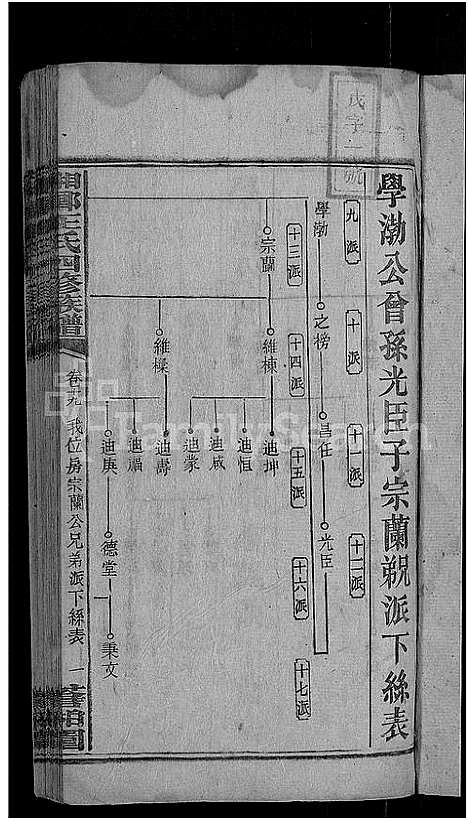 戊字一號
學渤公曾孫光臣子宗蘭覜派下絲表
九派
十派
十一派
十二派
學渤
之榜
昌任
光臣
十三派
十四派
十五派
十六派
十七派
宗蘭
維棟
迪坤
迪恒
迪咸
迪豪
維樑
迪壽
迪福
迪庚
德堂
秉文
湘鄉王氏四修族譜
卷六九 我位房宗蘭公兄弟派下絲表 一
FamilySearch